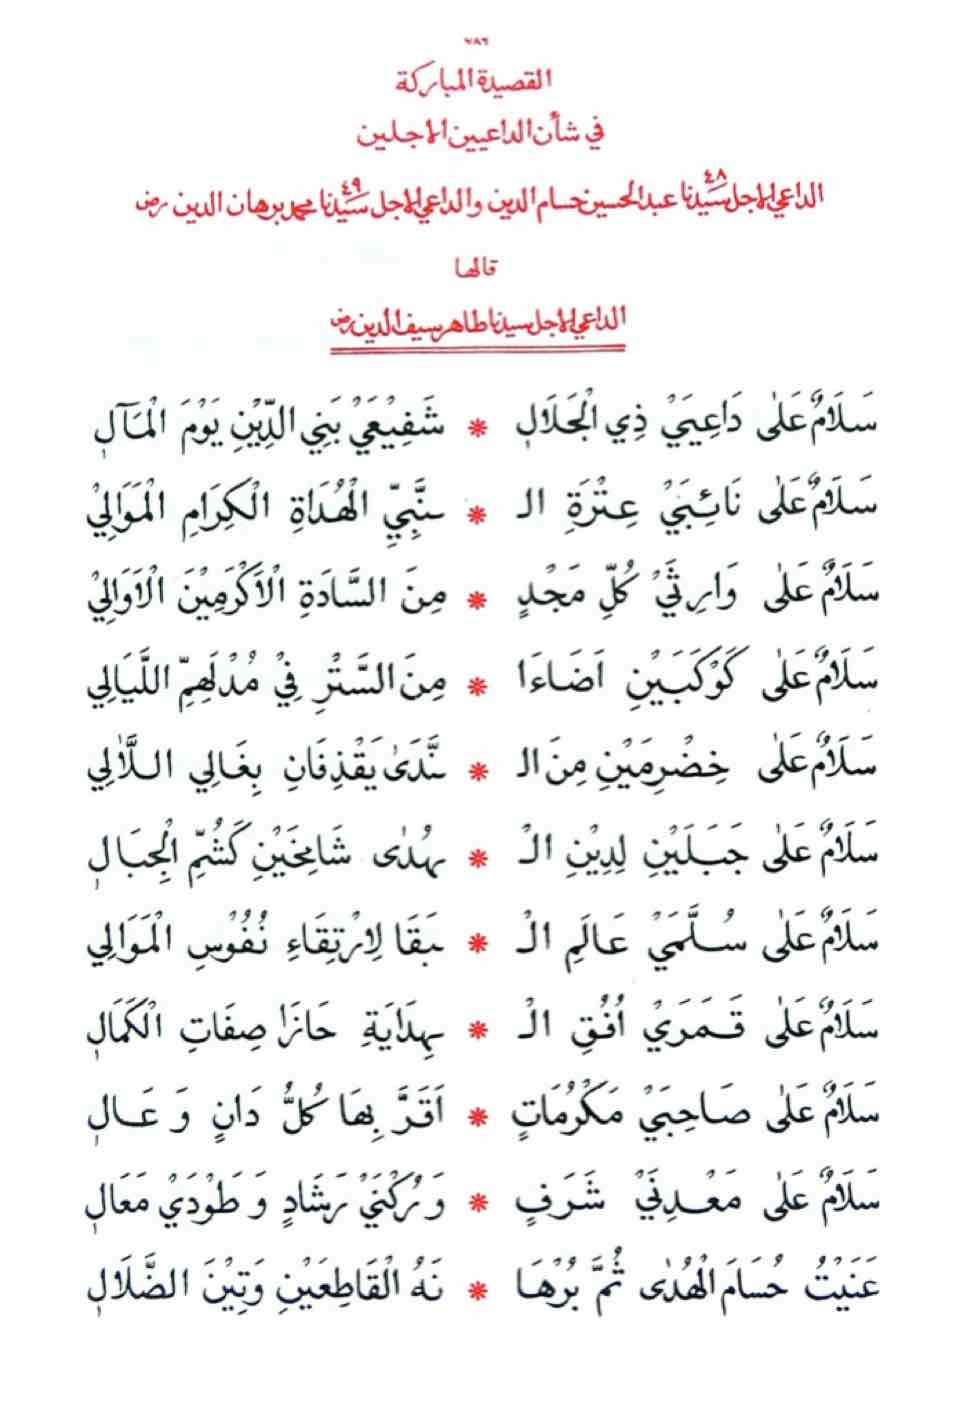 ٧٨٦
القصيدة المباركة
في شأن الداعيين الاجلين
الداعي الاجل سيدنا عبد الحسين حسام الدين ٤٨ والداعي الاجل سيدنا محمد برهان الدين ٤٩ رض
قالها
الداعي الاجل سيدنا طاهر سيف الدين رض
سَلَامٌ عَلٰى دَاعِيَيْ ذِي الْجَلَالِ * شَفِيْعَيْ بَنِي الدِّيْنِ يَوْمَ الْمَآلِ
سَلَامٌ عَلٰى نَائِبَيْ عِتْرَةِ الـ * ـنَّبِيِّ الْهُدَاةِ الْكِرَامِ الْمَوَالِيْ
سَلَامٌ عَلٰى وَارِثَيْ كُلِّ مَجْدٍ * مِنَ السَّادَةِ الْاَكْرَمِيْنَ الْاَوَالِيْ
سَلَامٌ عَلٰى كَوْكَبَيْنِ اَضَاءَا * مِنَ السَّتْرِ فِيْ مُدْلَهِمِّ اللَّيَالِي
سَلَامٌ عَلٰى خِضْرِمَيْنِ مِنَ الـ * ـنَّدَىٰ يَقْذِفَانِ بِغَالِي اللَّاٰلِي
سَلَامٌ عَلٰى جَبَلَيْنِ لِدِيْنِ الْـ * ـهُدٰى شَامِخَيْنِ كَشُمِّ الْجِبَالِ
سَلَامٌ عَلٰى سُلَّمَيْ عَالَمِ الْـ * ـبَقَا لِارْتِقَاءِ نُفُوْسِ الْمَوَالِي
سَلَامٌ عَلٰى قَمَرَيْ اُفُقِ الْـ * ـهِدَايَةِ حَازَا صِفَاتِ الْكَمَالِ
سَلَامٌ عَلٰى صَاحِبَيْ مَكْرُمَاتٍ * اَقَرَّ بِهَا كُلُّ دَانٍ وَ عَالِ
سَلَامٌ عَلٰى مَعْدِنَيْ شَرَفٍ * وَ رُكْنَيْ رَشَادٍ وَ طَوْدَيْ مَعَالِ
عَنَيْتُ حُسَامَ الْهُدٰى ثُمَّ بُرْهَا * نَهُ الْقَاطِعَيْنِ وَتِيْنَ الضَّلَالِ